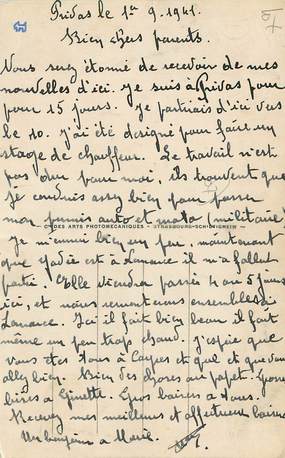 Privas le 1er 9. 1941.
Bien chers parents.
Vous serez étonné de recevoir de mes
nouvelles d'ici. Je suis à Privas pour
pour 15 jours. Je partirais d'ici vers
le 10. J'ai été désigné pour faire un
stage de chauffeur. Le travail n'est
pas dur pour moi, ils trouvent que
je conduis assez bien pour passer
mon permis auto et moto (militaire)
CIE DES ARTS PHOTOMÉCANIQUES - STRASBOURG-SCHILTIGHEIM
Je m'ennui bien un peu, maintenant
que est à il m'a fallut
partir. Elle viendra passée 4 ou 5 jours
ici, et nous remonterons ensemble à
. Ici il fait bien beau il fait
même un peu trop chaud. J'espère que
vous êtes tous à et que ça
allez bien. Bien des choses au papet. Grosses
bises à Ginette. Gros baisers à tous.
Recevez mes meilleurs et affectueux baisers
Un bonjour à